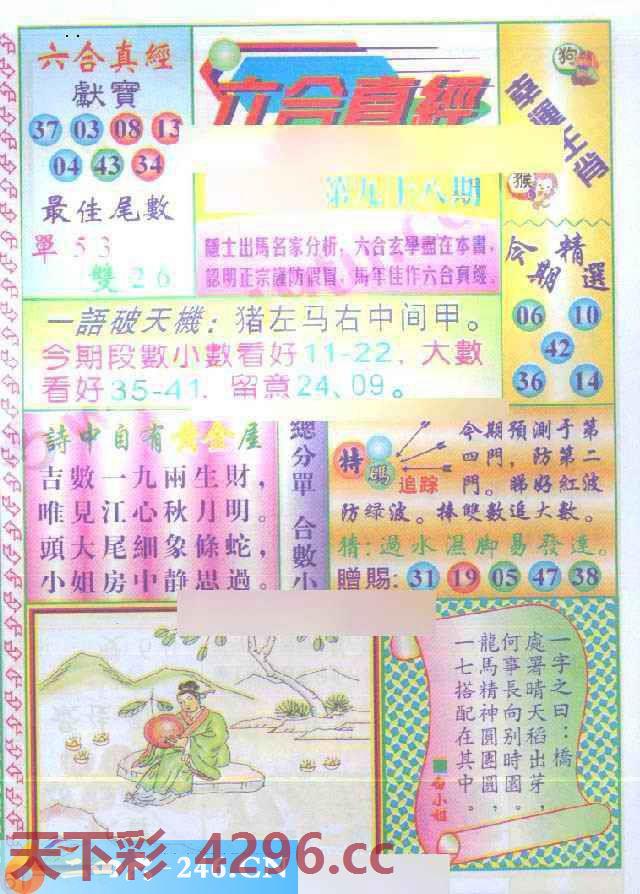 六合真經
獻寶
37 03 08 13
04 43 34
最佳尾數
單 5 3
雙 2 6
六合真經
第九十八期
隱士出馬名家分析，六合玄學盡在本書，
認明正宗謹防假冒，馬年佳作六合真經。
狗
幸運王肖
猴
今期精選
06 10
42
36 14
一語破天機：猪左马右中间甲。
今期段數小數看好11-22，大數
看好35-41，留意24、09。
詩中自有黄金屋
吉數一九兩生財，
唯見江心秋月明。
頭大尾細象條蛇，
小姐房中静思過。
總分單 合數小
特碼
追踪
今期預測于第
四門，防第二
門。睇好紅波
防绿波。捧雙數追大數。
猜：過水濕脚易發達。
贈賜：31 19 05 47 38
一字之曰：橋
處署晴天稻出芽，
何事長向别時圓。
龍馬精神圓團圓，
一七搭配在其中。
白小姐
天下彩 4296.cc
246.CN